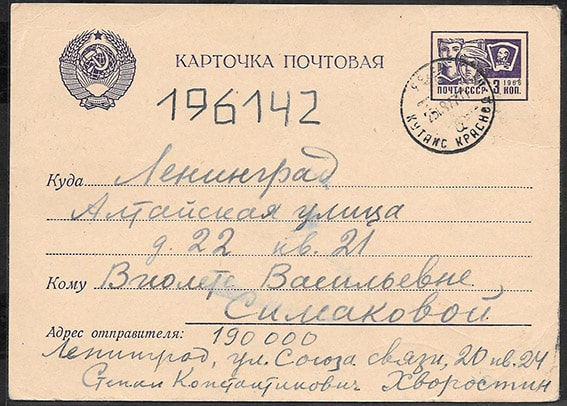 КАРТОЧКА ПОЧТОВАЯ
ПОЧТА СССР 1966 3 КОП.
196142
КУТАИС КРАСНОД
Куда Ленинград
Алтайская улица
д. 22 кв. 21
Кому Виолете Васильевне
Симаковой
Адрес отправителя: 190000
Ленинград, ул. Союза связи, 20 кв. 24
Степан Константинович Хворостин